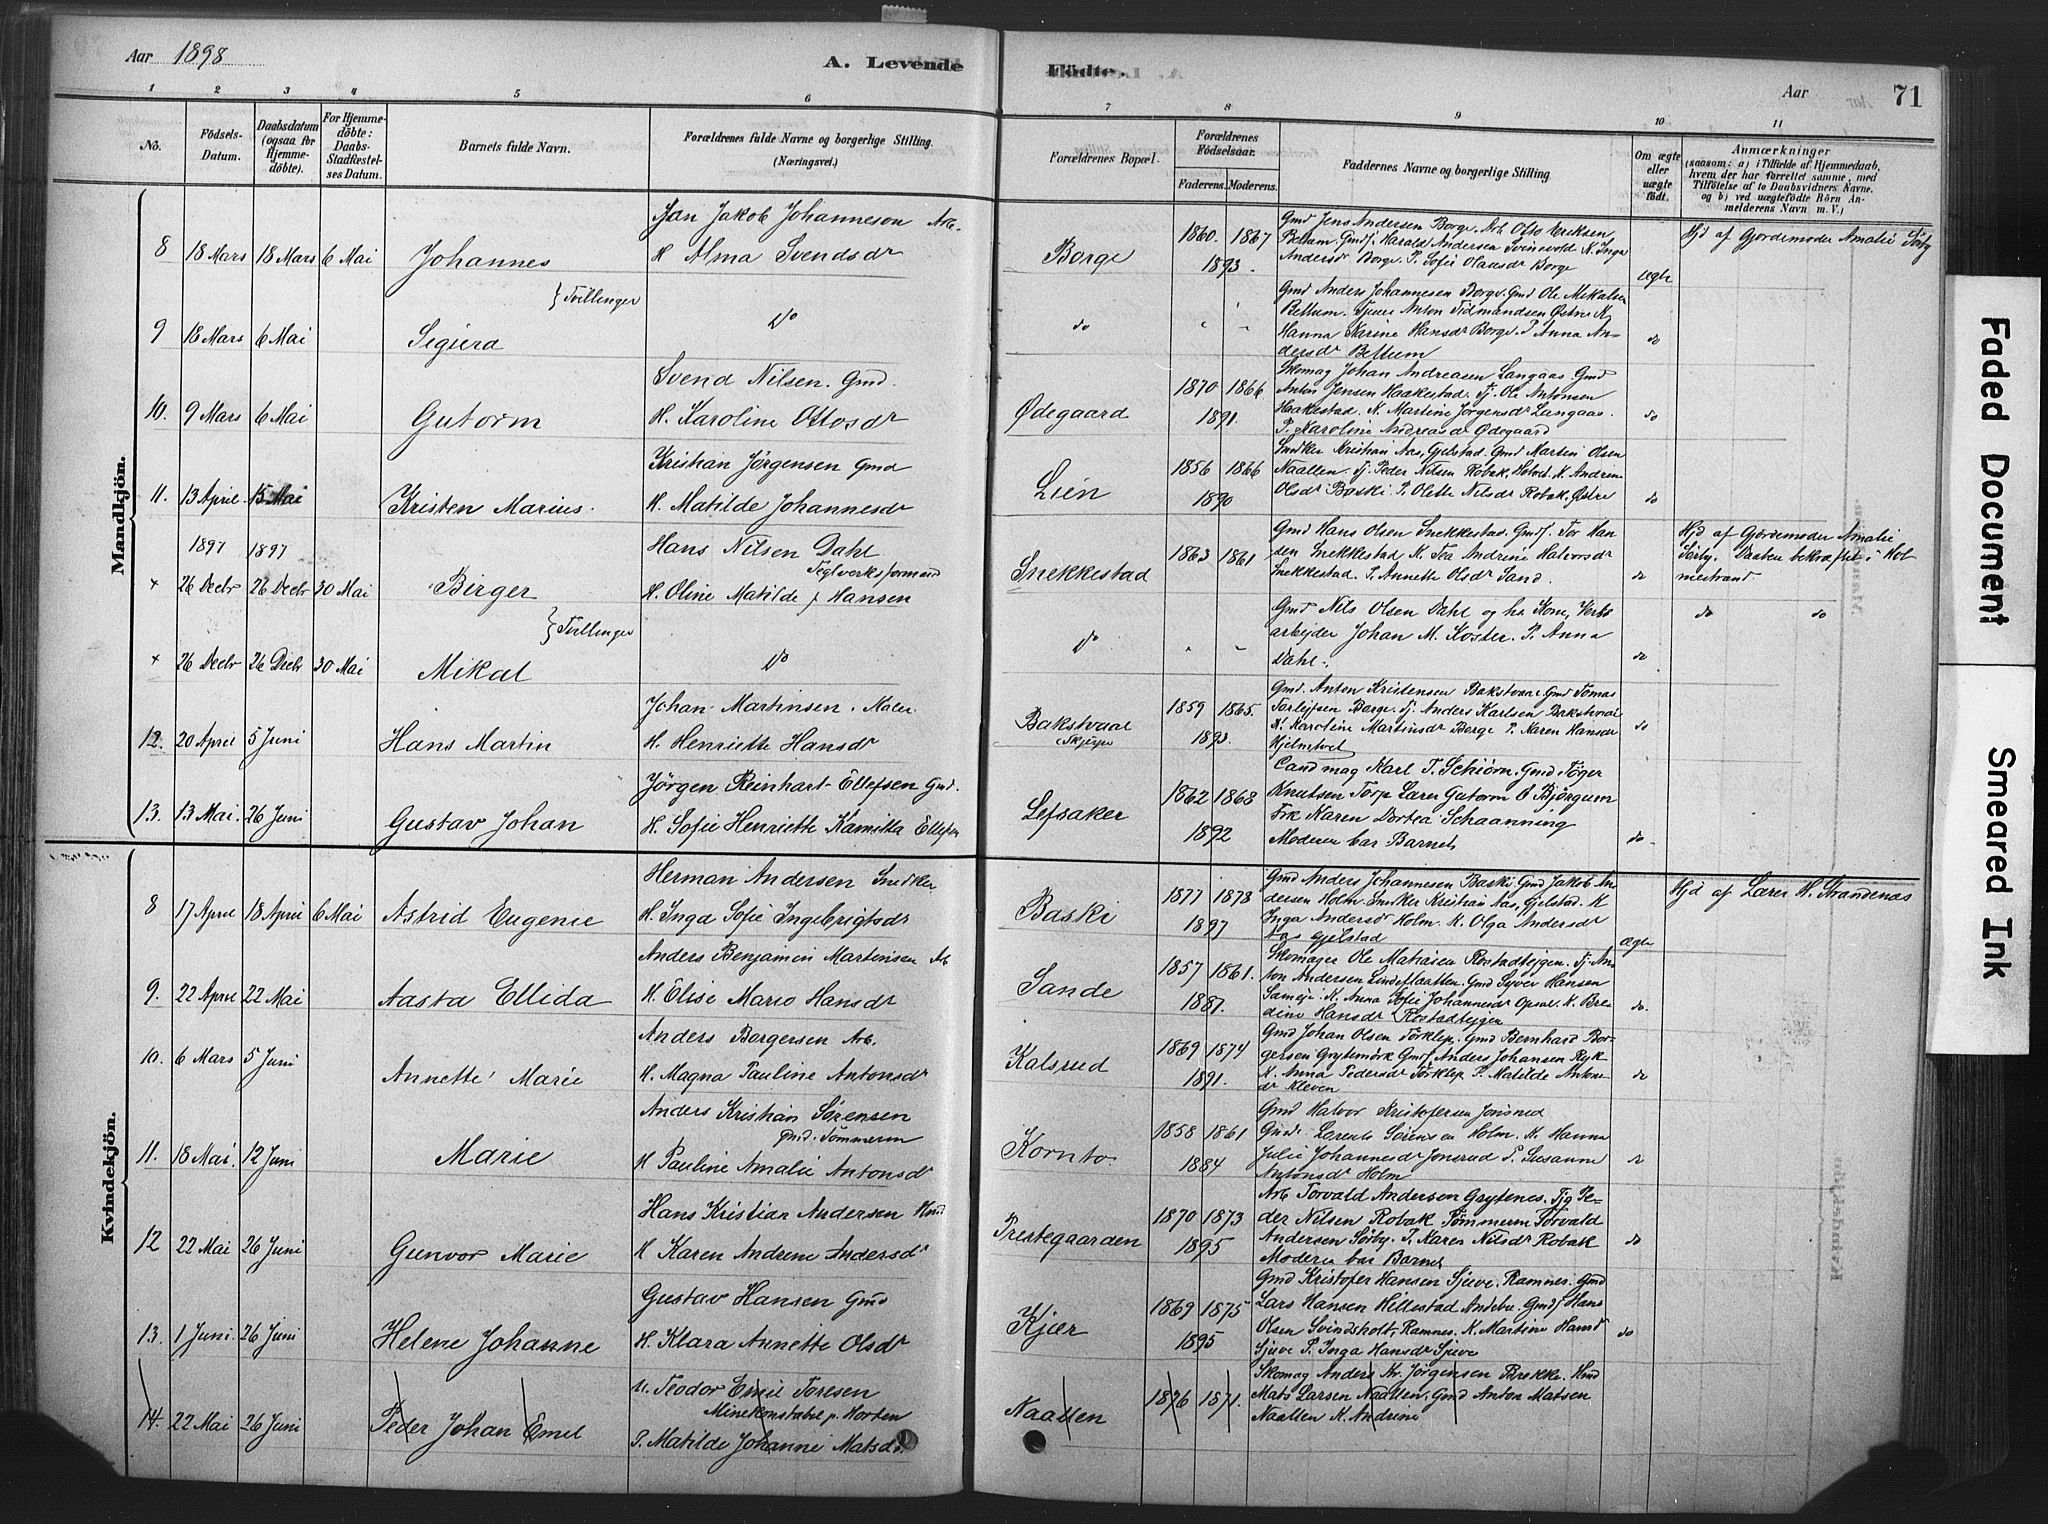 Aar 1898
A. Levende
Födte.
Aar
71
1 2 3 4 5 6 7 8 9 10 11
No.
Födsels-Datum.
Daabsdatum (ogsaa for Hjemmedöbte).
For Hjemmedöbte: Daabs-Stadfæstelses Datum.
Barnets fulde Navn.
Forældrenes fulde Navne og borgerlige Stilling. (Næringsvei.)
Forældrenes Bopæl.
Forældrenes Födselsaar.
Faderens. Moderens.
Faddernes Navne og borgerlige Stilling
Om ægte eller uægte födt.
Anmærkninger
(saasom: a) i Tilfælde af Hjemmedaab,
hvem der har forrettet samme, med
Tilföielse af to Daabsvidners Navne.
og b) ved uægtefödte Börn An-
melderens Navn m. V.)
Mandkjön.
8 18 Mars 18 Mars 6 Mai Johannes
Jan Jakob Johanneson Arb.
H Alma Svendsdr
Borge 1860. 1867 1893.
Gmd Jens Andersen Borge. Arb Otto Eriksen
Bettum. Gmdsj. Harald Andersen Svinevold K. Inga
Andersdr Borge. P. Sofie Olausdr Borge
ægte
Hjd af Gjordemoder Amalie Sörby
} Tvillinger
9 18 Mars 6 Mai Sigurd
Do
do " "
Gmd Anders Johannesen Borge. Gmd Ole Mikalsen
Bettum. Tjener Anton Tidmandsen Østre K
Hanna Karine Hansdr Borge. P. Anna An-
dersdr Bettum
do
10. 9 Mars 6 Mai Gutorm
Svend Nilsen. Gmd.
H. Karoline Ottosdr
Ødegaard 1870 1866 1891.
Skomag Johan Andreasen Langaas Gmd
Anton Jensen Haakestad. Tj. Ole Antonsen
Haakestad. K. Martine Jørgensdr Langaas.
P. Karoline Andreasdr Ødegaard
do
11. 13 April 15 Mai Kristen Marius.
Kristian Jörgensen Gmd
H. Matilde Johannesdr
Lien 1856 1866 1890
Snedker Kristian Aas, Gjelstad. Gmd Martin Olsen
Naallen. Tj. Peder Nilsen Robak, Hatved. K. Andrine
Olsdr Baski P. Olette Nilsdr Robak, Østre
do
1897 1897
+ 26 Decbr 26 Decbr 30 Mai Birger
Hans Nilsen Dahl
Teglverksformand
H. Oline Matilde f. Hansen
Snekkestad 1863 1861
Gmd Hans Olsen Snekkestad. Gmdsj. Tor Han-
sen Snekkestad K. Tea Andrine Halvorsdr
Snekkestad. P. Annette Olsdr Sand.
do
Hjd af Gjordemoder Amalie
Sörby. Daaben bekræftet i Hol
mestrand
} Tvillinger
+ 26 Decbr 26 Decbr 30 Mai Mikal
Do
Do " "
Gmd Nils Olsen Dahl og hs Kone, Verks
arbejder Johan M. Koster. P. Anna
Dahl.
do
do do
12. 20 April 5 Juni Hans Martin
Johan Martinsen. Maler.
H. Henriette Hansdr
Bakstvaal 1859 1865. 1893.
Gmd. Anton Kristensen Bakstvaal Gmd Tomas
Torleifsen Borge. Tj Anders Karlsen Bakstvaal
K. Karoline Martinsdr Borge P. Karen Hansdr
Hjelmtvet
do
13. 13 Mai. 26 Juni Gustav Johan
Jörgen Reinhart Ellefsen Gmd.
H. Sofie Henriette Kamilla Ellefsen
Lefsaker 1862 1868 1892
Cand mag Karl T. Schiörn. Gmd Töger
Knutsen Torp Lærer Gutorm O Bjørgum
Frk Karen Dortea Schaanning
Moderen bar Barnet
do
Kvindekjön.
8 17 April 18 April 6 Mai Astrid Eugenie
Herman Andersen Snedker
H. Inga Sofie Ingebrigtsdr
Baski 1877 1878 1897
Gmd Anders Johannesen Baski Gmd Jakob An-
dersen Holm. Snedker Kristian Aas, Gjelstad. K
Inga Andersdr Holm. K. Olga Andersdr
Aas Gjelstad
ægte
Hjd af Lærer H. Strandenæs
9. 22 April 22 Mai Aasta Ellida
Anders Benjamin Martinsen Arb
H. Elise Marie Hansdr
Sande 1857 1861. 1887.
Skomager Ole Matisen Rostadtejgen. Tj. An-
ton Andersen Lindeflaatten. Gmd Syver Hansen
Sameje. K. Anna Sofie Johannesdr Opsal. K. Bre-
dine Hansdr Rostadtejgen
do.
10. 6 Mars 5 Juni Annette Marie
Anders Borgersen Arb.
H. Magna Pauline Antonsdr
Kalsrud 1869 1874 1891.
Gmd Johan Olsen Törklep. Gmd Bernhard Bor-
gersen Grytemörk Gmdsj. Anders Johansen Ryk-
K. Anna Pedersdr Törklep P. Matilde Antons
dr Kleven
do
11. 18 Mai. 12 Juni Marie
Anders Kristian Sørensen
Gmd. Tömmerm
H Pauline Amalie Antonsdr
Kornto 1858 1861 1884
Gmd Halvor Kristofersen Jonsrud
Gmd. Lorents Sörensen Holm. K. Hanna
Julie Johannesdr Jonsrud P. Susanne
Antonsdr Holm
do
12 22 Mai 26 Juni Gunvor Marie
Hans Kristian Andersen Hmd
H Karen Andrine Andersdr
Prestegaarden 1870 1873 1895
Arb Torvald Andersen Grytenes. Tjg Pe-
der Nilsen Robak Tömmerm Torvald
Andersen Sörby. P. Karen Nilsdr Robak
Moderen bar Barnet
do
13. 1 Juni. 26 Juni Helene Johanne
Gustav Hansen Gmd
H. Klara Annette Olsdr
Kjær 1869 1875 1895
Gmd Kristofer Hansen Sjuve. Ramnes. Gmd
Lars Hansen Hillestad Andebu. Gmdsj Hans
Olsen Svindsholt, Ramnes. K. Martine Hansdr
Sjuve P. Inga Hansdr Sjuve
do
14. 22 Mai 26 Juni Peder Johan Emil
U. Teodor Emil Toresen
Minekonstabel p. Horten
P. Matilde Johanne Matsdr
Naallen 1876 1871.
Skomag Anders Kr. Jörgensen Brekke. Hmd
Mats Larsen Naallen, Gmd Anton Matsen
Naallen K. Andrine
Faded Document
Smeared Ink